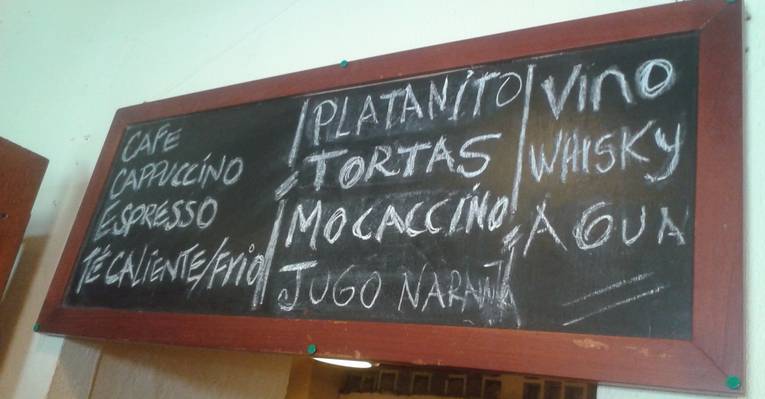 CAFE
CAPPUCCÍNO
ESPRESSO
TÉ CALIENTE/FRIO
PLATANÍTO
TORTAS
MOCACCÍNO
JUGO NARANJA
VINO
WHISKY
AGUA